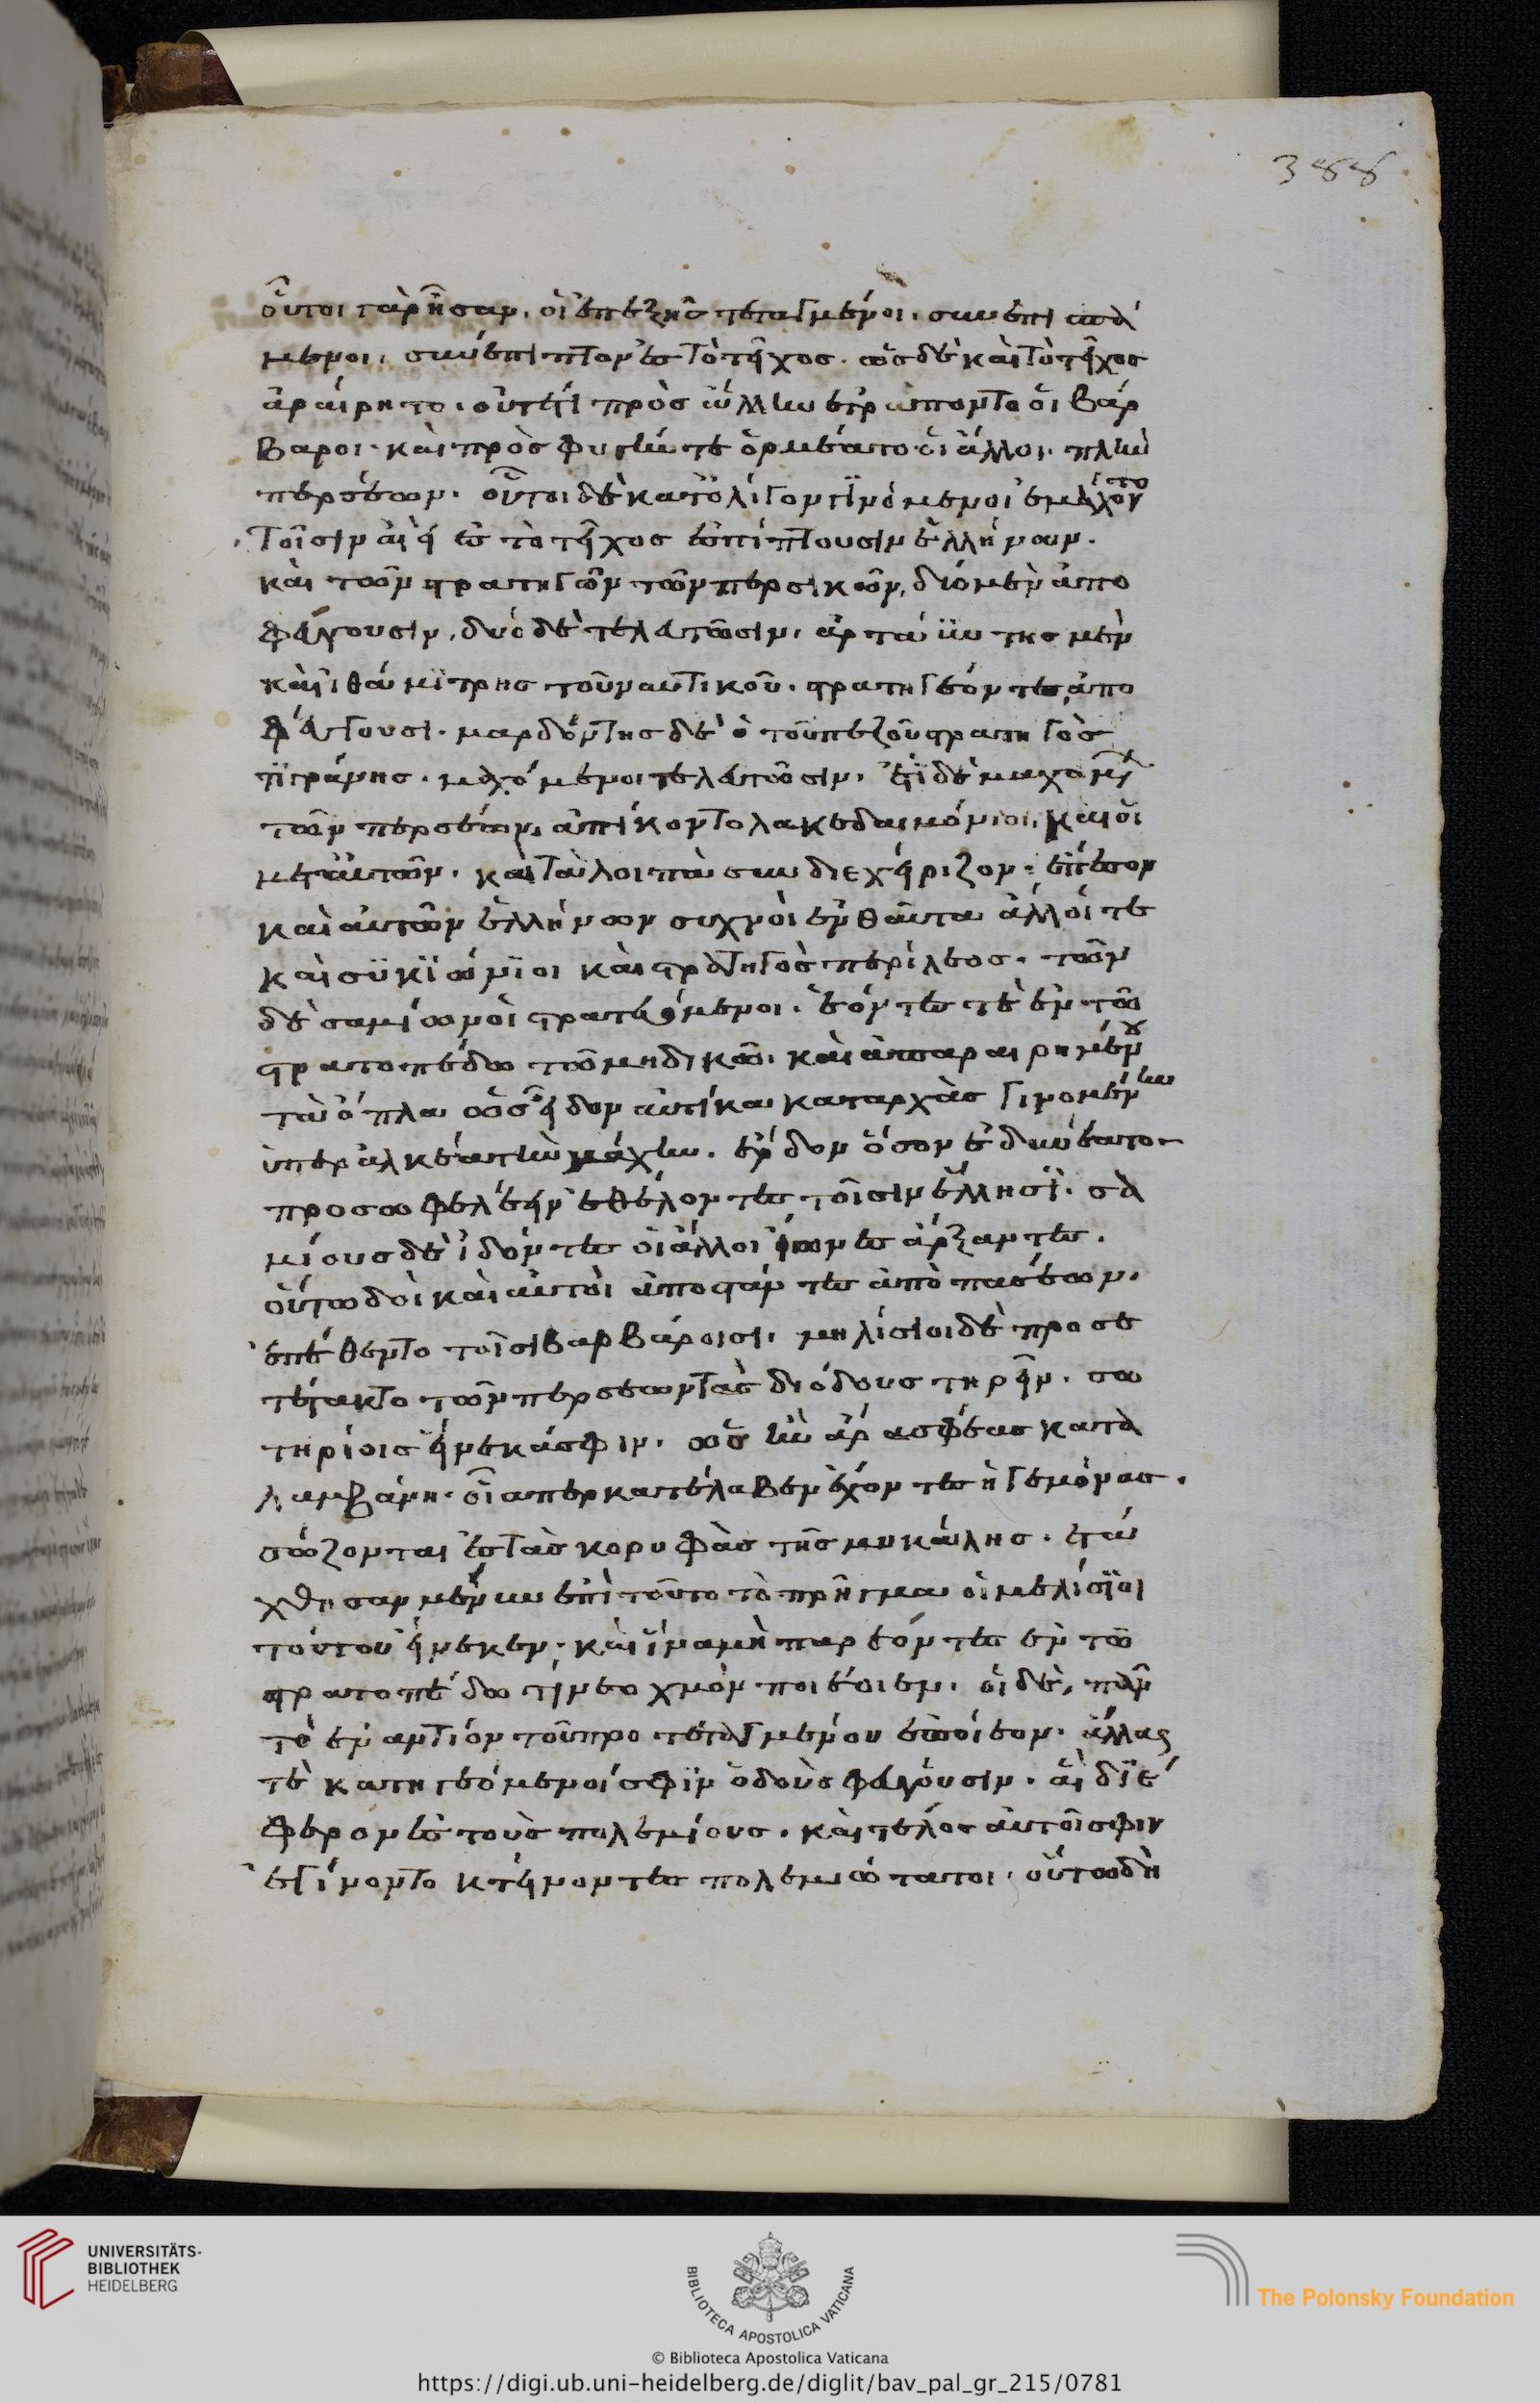 388
οὗτοι γὰρ ἦσαν. οἱ ἐπεξῆς τεταγμένοι. συνεπισπό
μενοι. συνέπιπτον ἐς τὸ τεῖχος. ὡς δὲ καὶ τὸ τεῖχος
ἀραίρητο. οὔτ' ἔτι πρὸς ἄλλην ἐτράποντο οἱ βάρ
βαροι. καὶ πρὸς φυγήν τε ὁρμέατο οἱ ἄλλοι. πλὴν
περσέων. οὗτοι δὲ κατ' ὀλίγον γϊνόμενοι ἐμάχοντο
τοῖσιν αἰεὶ ἐς τὸ τεῖχος ἐσπίπτουσιν ἑλλήνων.
καὶ τῶν στρατηγῶν τῶν περσικῶν, δύο μὲν ἀπο
φεύγουσιν, δύο δὲ τελευτῶσιν. ἀρταΰντης μὲν
καὶ ἰθαμΐτρης τοῦ ναυτικοῦ. στρατηγέοντες, ἀπο
φεύγουσι. μαρδόντης δὲ ὁ τοῦ πεζοῦ στρατηγὸς
τϊγράνης. μαχόμενοι τελευτῶσιν. ἔτϊ δὲ μαχομένων
τῶν περσέων, ἀπίκοντο λακεδαιμόνιοι, καὶ οἱ
μετ' αὐτῶν. καὶ τὰ λοιπὰ συνδιεχείριζον. ἔπεσον
καὶ αὐτῶν ἑλλήνων συχνοὶ ἐνθαῦτα ἄλλοί τε
καὶ σϋκϊώνϊοι καὶ στρατηγὸς περίλεος. τῶν
δὲ σαμίων οἱ στρατευόμενοι. ἐόντες τὲ ἐν τῶ
στρατοπέδω τῶ μηδικῶ. καὶ ἀπαραιρημένοι
τὰ ὅπλα ὡς εἶδον αὐτίκα καταρχὰς γινομένην
ὑπεραλκέα τὴν μάχην. ἔρδον ὅσον ἐδυνέατο
προσωφελέειν ἐθέλοντες τοῖσιν ἕλλησϊ. σα
μίους δὲ ἰδόντες οἱ ἄλλοι ἴωνες ἄρξαντες.
οὕτω δὴ καὶ αὐτοὶ ἀποστάντες ἀπὸ περσέων.
ἐπέθεντο τοῖσι βαρβάροισι. μηλίσιοι δὲ προσε
τέτακτο τῶν περσέων τὰς διόδους τηρεῖν. σω
τηρίοις εἵνεκά σφιν. ὡς ἢν ἄρα σφέας κατα
λαμβάνη. οἷαπερ κατέλαβεν ἔχοντες ἡγεμόνας.
σώζονται ἐς τὰς κορυφὰς τῆς μυκάλης. ἐτά
χθησαν μέν νυν ἐπὶ τοῦτο τὸ πρῆγμα οἱ μελίσϊοι
τούτου εἵνεκεν. καὶ ἵνα μὴ παρεόντες ἐν τῶ
στρατοπέδω τὶ νεοχμὸν ποιέοιεν. οἱ δὲ, πᾶν
τὸ ἐναντίον τοῦ προτεταγμένου ἐποίεον. ἄλλας
τὲ κατηγεόμενοί σφϊν ὁδοὺς φεύγουσιν. αἳ δϊέ
φερον ἐς τοὺς πολεμίους. καὶ τέλος αὐτοί σφιν
ἐγίνοντο κτείνοντες πολεμιώτατοι. οὕτω δὴ
UNIVERSITÄTS-
BIBLIOTHEK
HEIDELBERG
BIBLIOTECA APOSTOLICA VATICANA
The Polonsky Foundation
© Biblioteca Apostolica Vaticana
https://digi.ub.uni-heidelberg.de/diglit/bav_pal_gr_215/0781